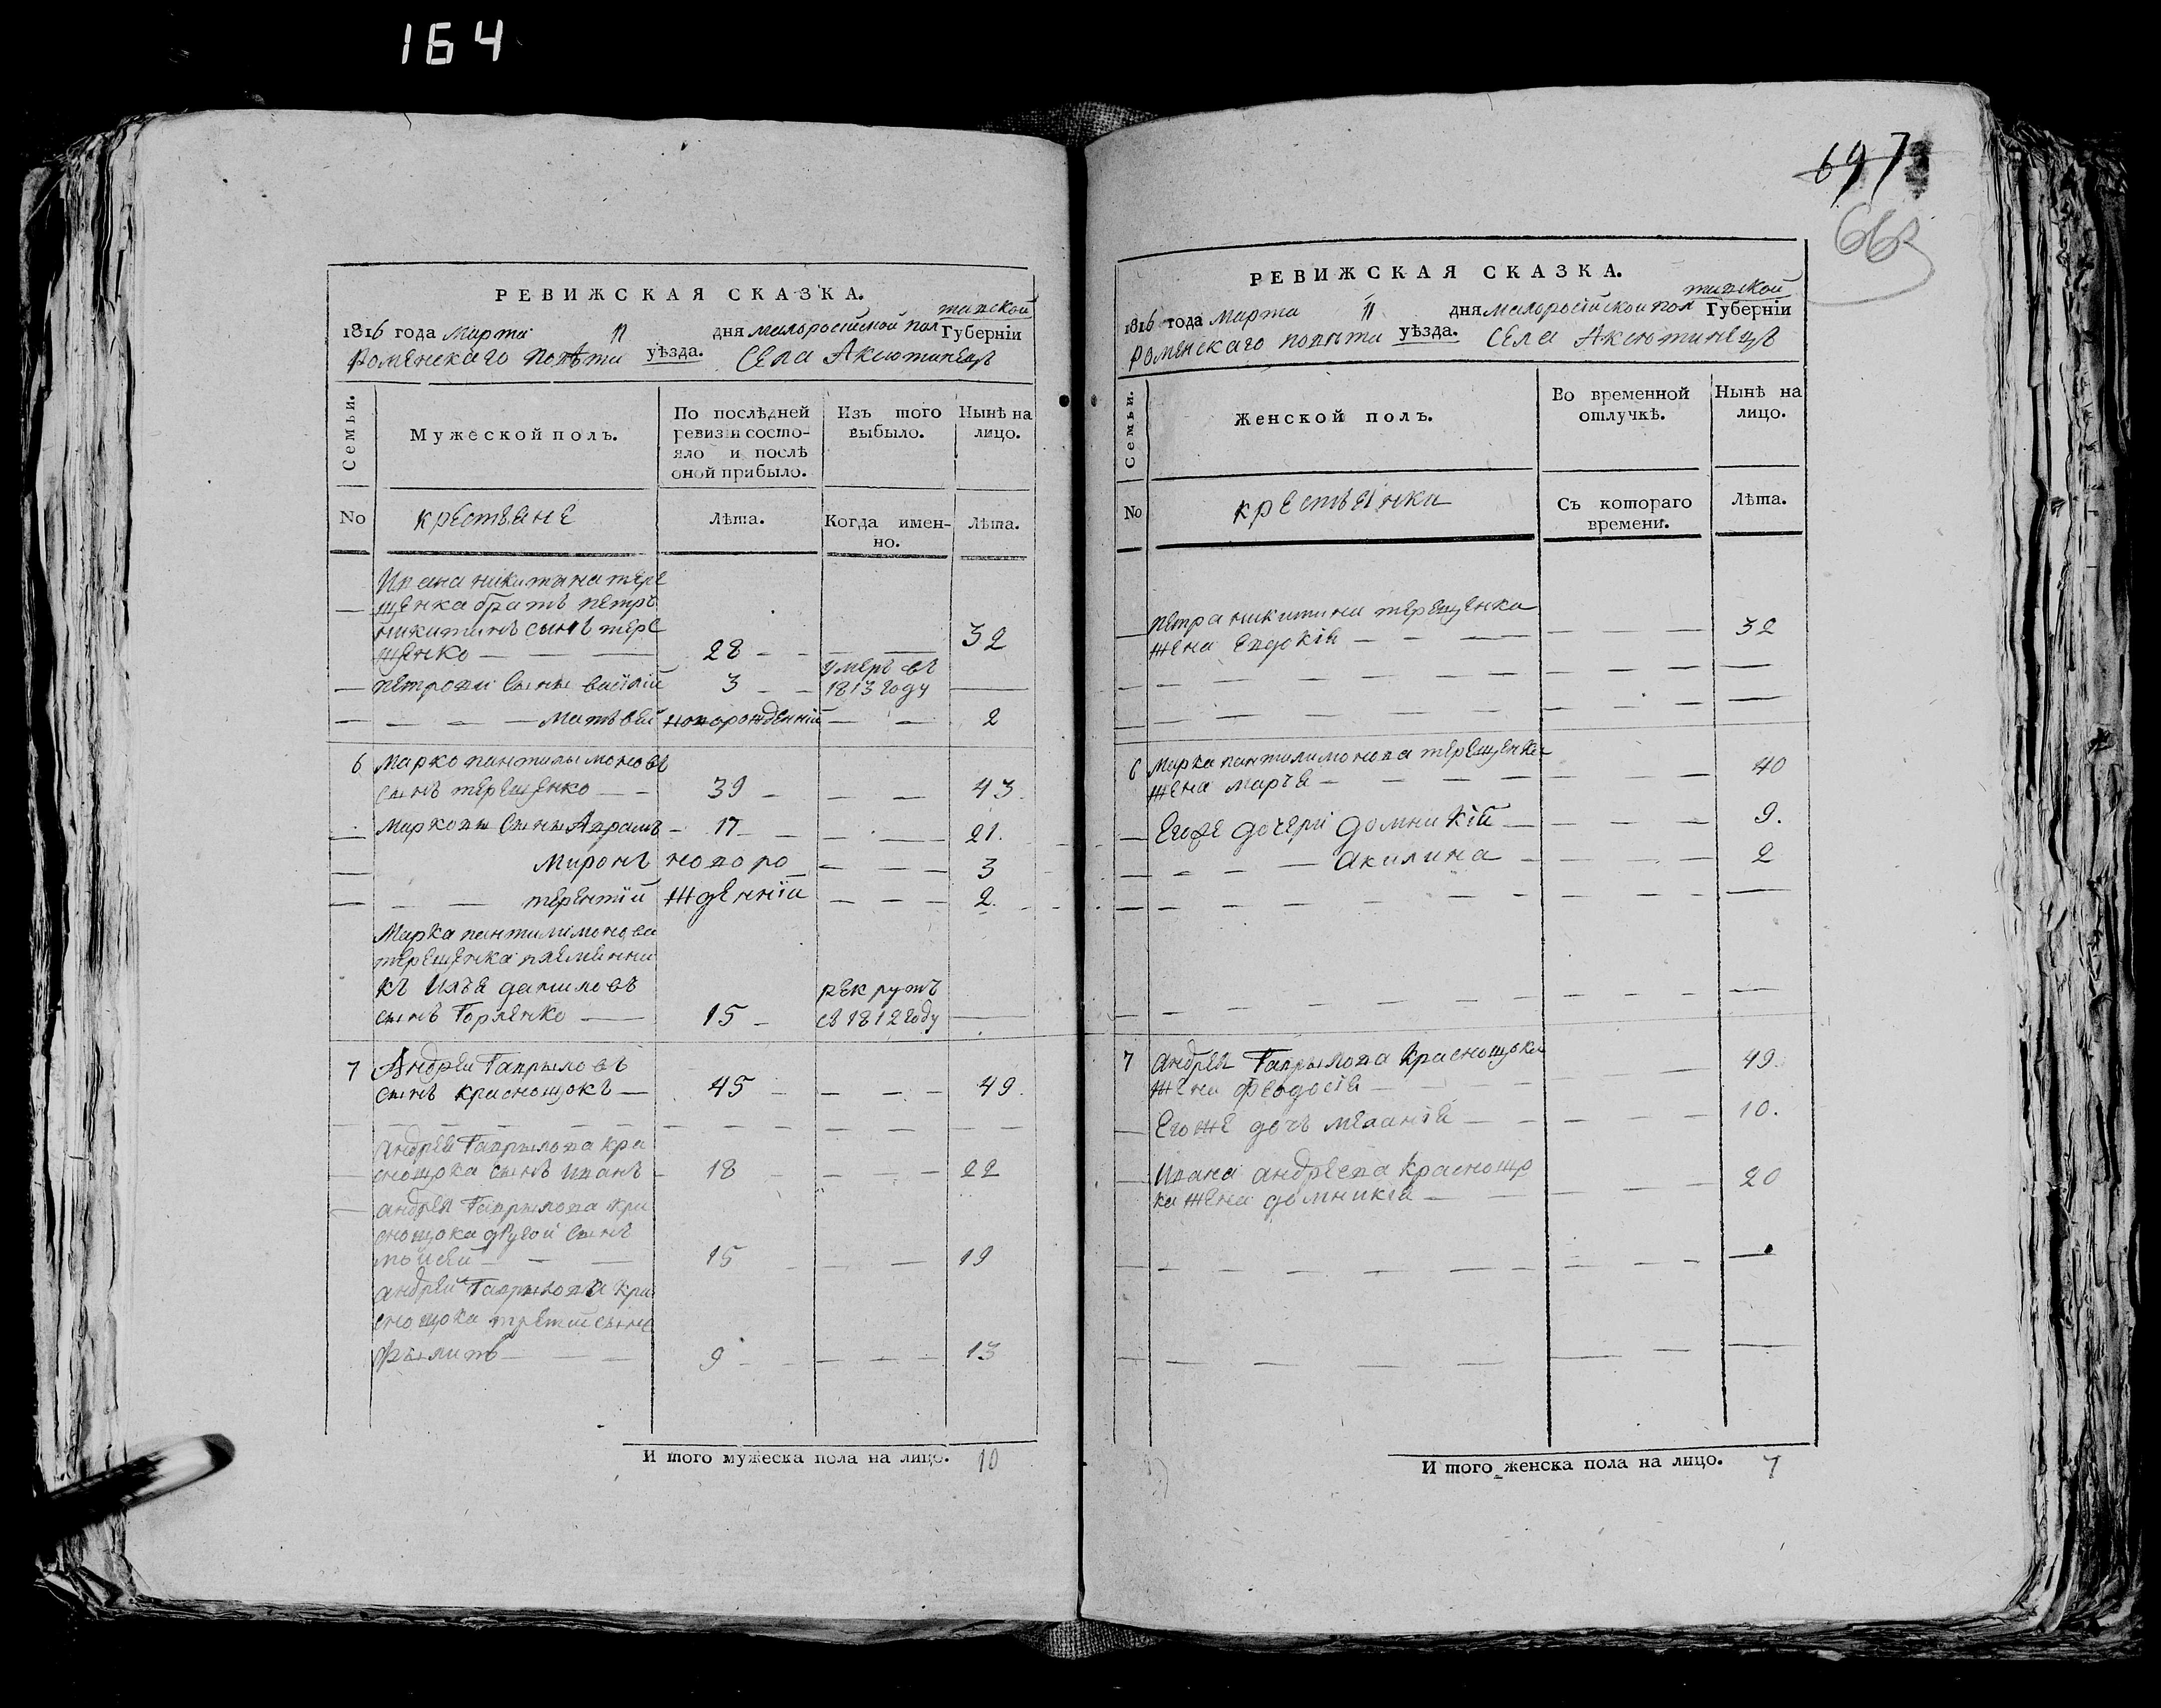 164
РЕВИЖСКАЯ СКАЗКА.
1816 года Марта 11 дня малоросійской пол
тавской
Губерніи
Роменскаго повѣта уѣзда. Села Аксютинецъ
Семьи.
Мужеской полъ.
По послѣдней
ревизіи состо-
яло и послѣ
оной прибыло.
Изъ того
выбыло.
Нынѣ на
лицо.
No
крестьяне
лѣта.
Когда имен-
но.
лѣта.
Ивана никитина тере
щенка братъ петръ
никитинъ сынъ тере
щенко 28 32
петровы сыны василій 3 умеръ въ
1813 году
Матвей новорожденній 2
6 Марко пантилимоновъ
сынъ терещенко 39 43.
Марковы сыны Аврамъ 17 21.
Миронъ новоро 3
терентій жденніи 2.
Марка пантилимонова
терещенка племенни
къ Илья даниловъ рекрутъ
сынъ Горленко 15 въ 1812 году
7 Андрей Гаврыловъ
сынъ краснощокъ 45 49.
андрея Гаврылова кра
снощока сынъ иванъ 18 22
андрея Гаврылова кра
снощока другой сынъ
мойсей 15 19
андрея Гаврылова кра
снощока третій сынъ
Фылипъ 9 13
И того мужеска пола на лицо. 10
697
663
РЕВИЖСКАЯ СКАЗКА.
1816 года Марта 11 дня малоросійской пол
тавской
Губерніи
Роменскаго повѣта уѣзда. Села Аксютинецъ
Семьи.
Женской полъ.
Во временной
отлучкѣ.
Нынѣ на
лицо.
No
крестьянки
Съ котораго
времени.
лѣта.
петра никитина терещенка
жена Евдокія 32
6 Марка пантилимонова терещенка
жена марья 40
Егоже дочери домникій 9.
акилина 2
7 андрея Гаврылова краснощока
жена феодосія 49.
Егоже дочь меланія 10.
Ивана андреева краснощо
ка жена домникія 20
И того женска пола на лицо. 7